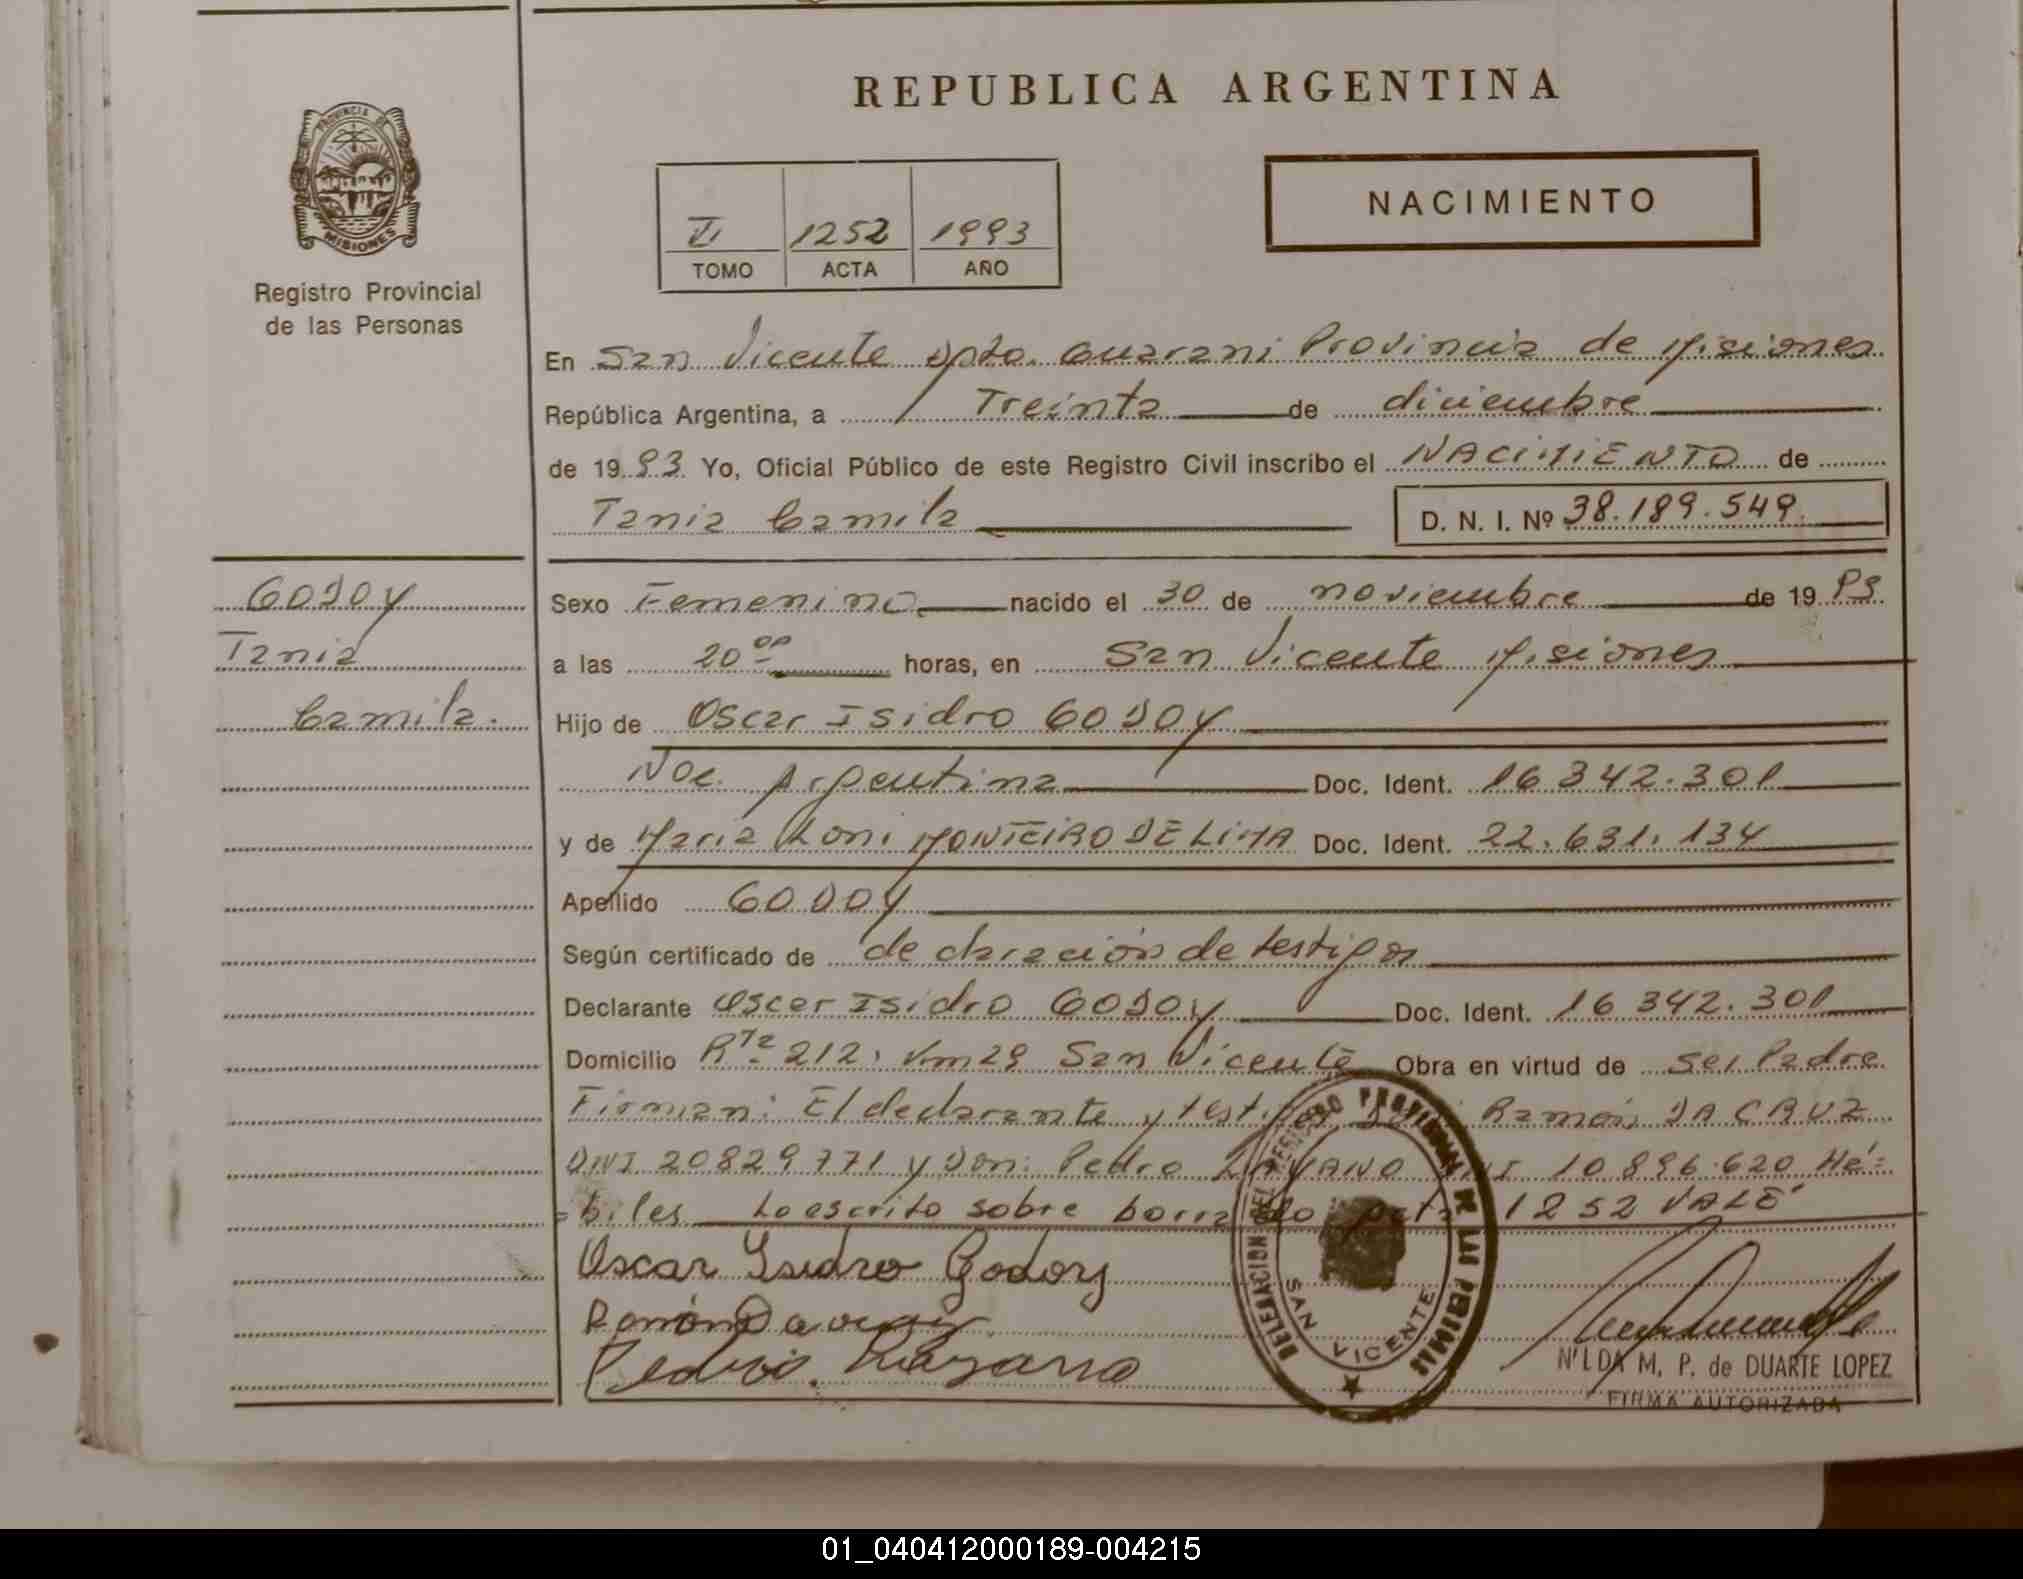 REPUBLICA ARGENTINA
PROVINCIA DE
MISIONES
Registro Provincial
de las Personas
NACIMIENTO
1252 1993
TOMO ACTA AÑO
En San Vicente Dpto. Guarani Provincia de Misiones
República Argentina, a Treinta de diciembre
de 1993. Yo, Oficial Público de este Registro Civil inscribo el NACIMIENTO de
Tania Camila D. N. I. Nº 38.189.549.
GODOY
Tania
Camila.
Sexo Femenino nacido el 30 de noviembre de 1993.
a las 20 00 horas, en San Vicente Misiones
Hijo de Oscar Isidro GODOY
Nac. Argentina Doc. Ident. 16 342.301
y de Maria Loni MONTEIRO DE LIMA Doc. Ident. 22.631.134
Apellido GODOY
Según certificado de declaración de testigos
Declarante Oscar Isidro GODOY Doc. Ident. 16 342.301
Domicilio Rta 212, Km 29 San Vicente Obra en virtud de ser Padre
Firman: El declarante y testigos Ramón DA CRUZ
DNI 20829771 y Don: Pedro 10.896.620 Há=
=biles Lo escrito sobre borrado acta 1252 VALE
Oscar Isidro Godoy
Ramón Da
Pedro.
DELEGACION DEL REGISTRO PROVINCIAL DE LAS PERSONAS
SAN VICENTE
NILDA M. P. de DUARTE LOPEZ
FIRMA AUTORIZADA
01_040412000189-004215